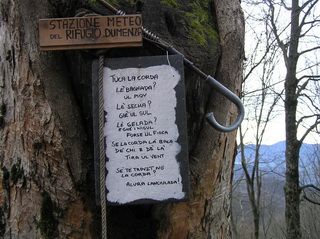 STAZIONE METEO
DEL RIFUGIO DUMENZA
TUCA LA CORDA
L'È BAGNADA?
UL PIOV
L'È SECHA?
GHÈ UL SUL
L'È GELADA?
FORSE UL FIOCA
SE LA CORDA LA BALA
DE CHI E DE LÀ
TIRA UL VENT
SE TE TROVIT NO
LA CORDA?
ALURA